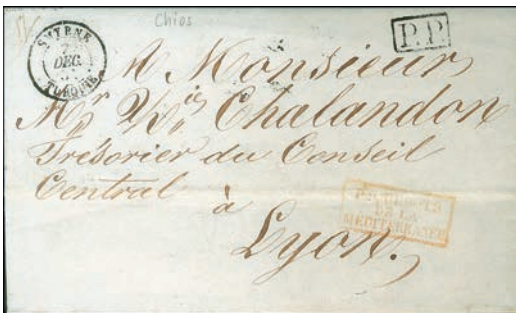 Chios
SMYRNE
DEC.
TURQUIE
P.P.
A Monsieur
Mr Chalandon
Trésorier du Conseil
Central
à
Lyon.
PAQUEBOTS
DE LA
MEDITERRANEE